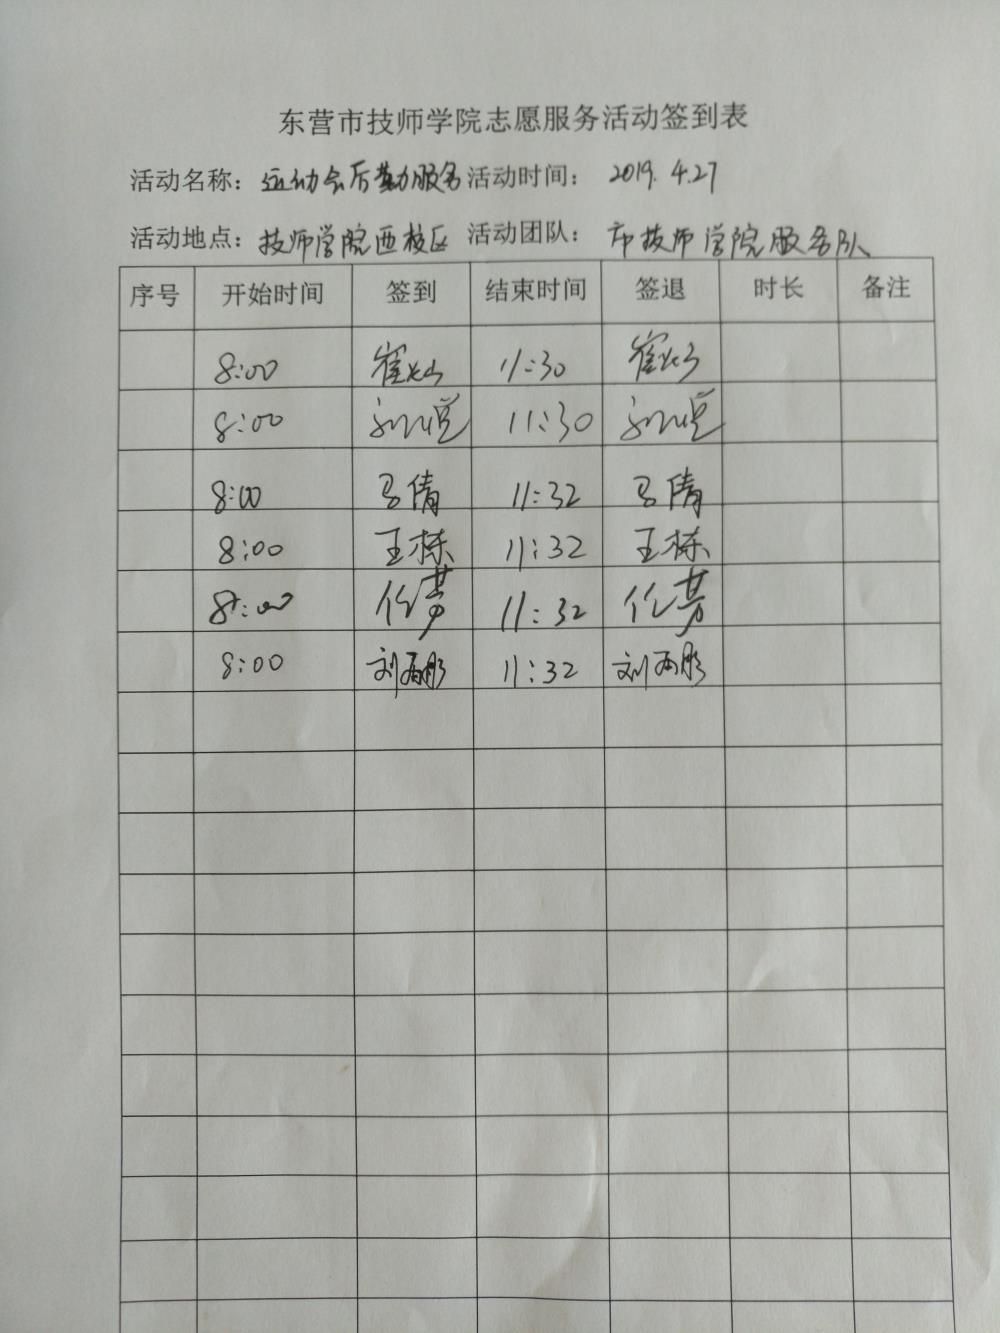 东营市技师学院志愿服务活动签到表
活动名称：运动会后勤服务 活动时间： 2019.4.27
活动地点：技师学院西校区 活动团队： 市技师学院服务队
序号 开始时间 签到 结束时间 签退 时长 备注
8:00 11:30
8:00 11:30
8:00 马倩 11:32 马倩
8:00 王栋 11:32 王栋
8:00 11:32
8:00 刘雨彤 11:32 刘雨彤